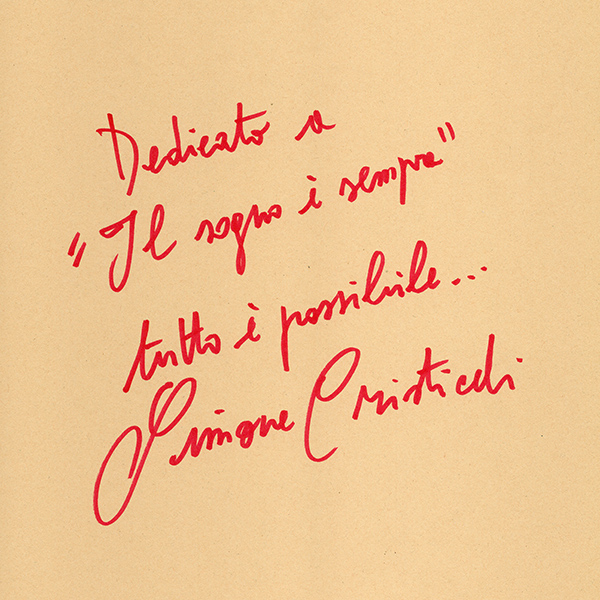 Dedicato a
"Il sogno è sempre"
tutto è possibile...
Simone Cristicchi